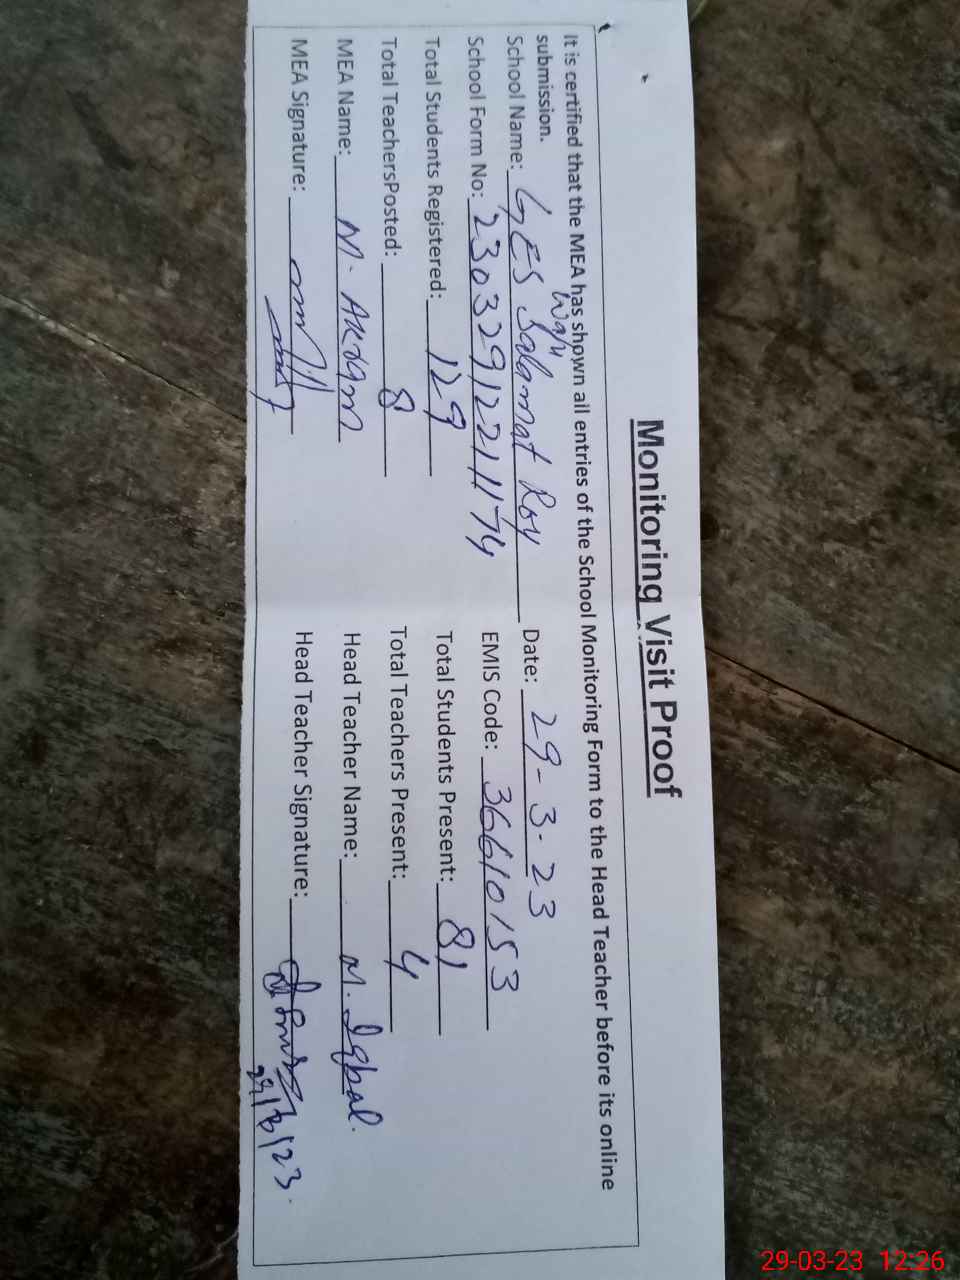 Monitoring Visit Proof
It is certified that the MEA has shown all entries of the School Monitoring Form to the Head Teacher before its online
submission.
School Name: GES Salamat Roy Date: 29-3-23
School Form No: 23032912211174 EMIS Code: 36610153
Total Students Registered: 129 Total Students Present: 81
Total TeachersPosted: 8 Total Teachers Present: 4
MEA Name: M. Akram Head Teacher Name: M. Iqbal.
MEA Signature: Head Teacher Signature:
29/3/23.
29-03-23 12:26